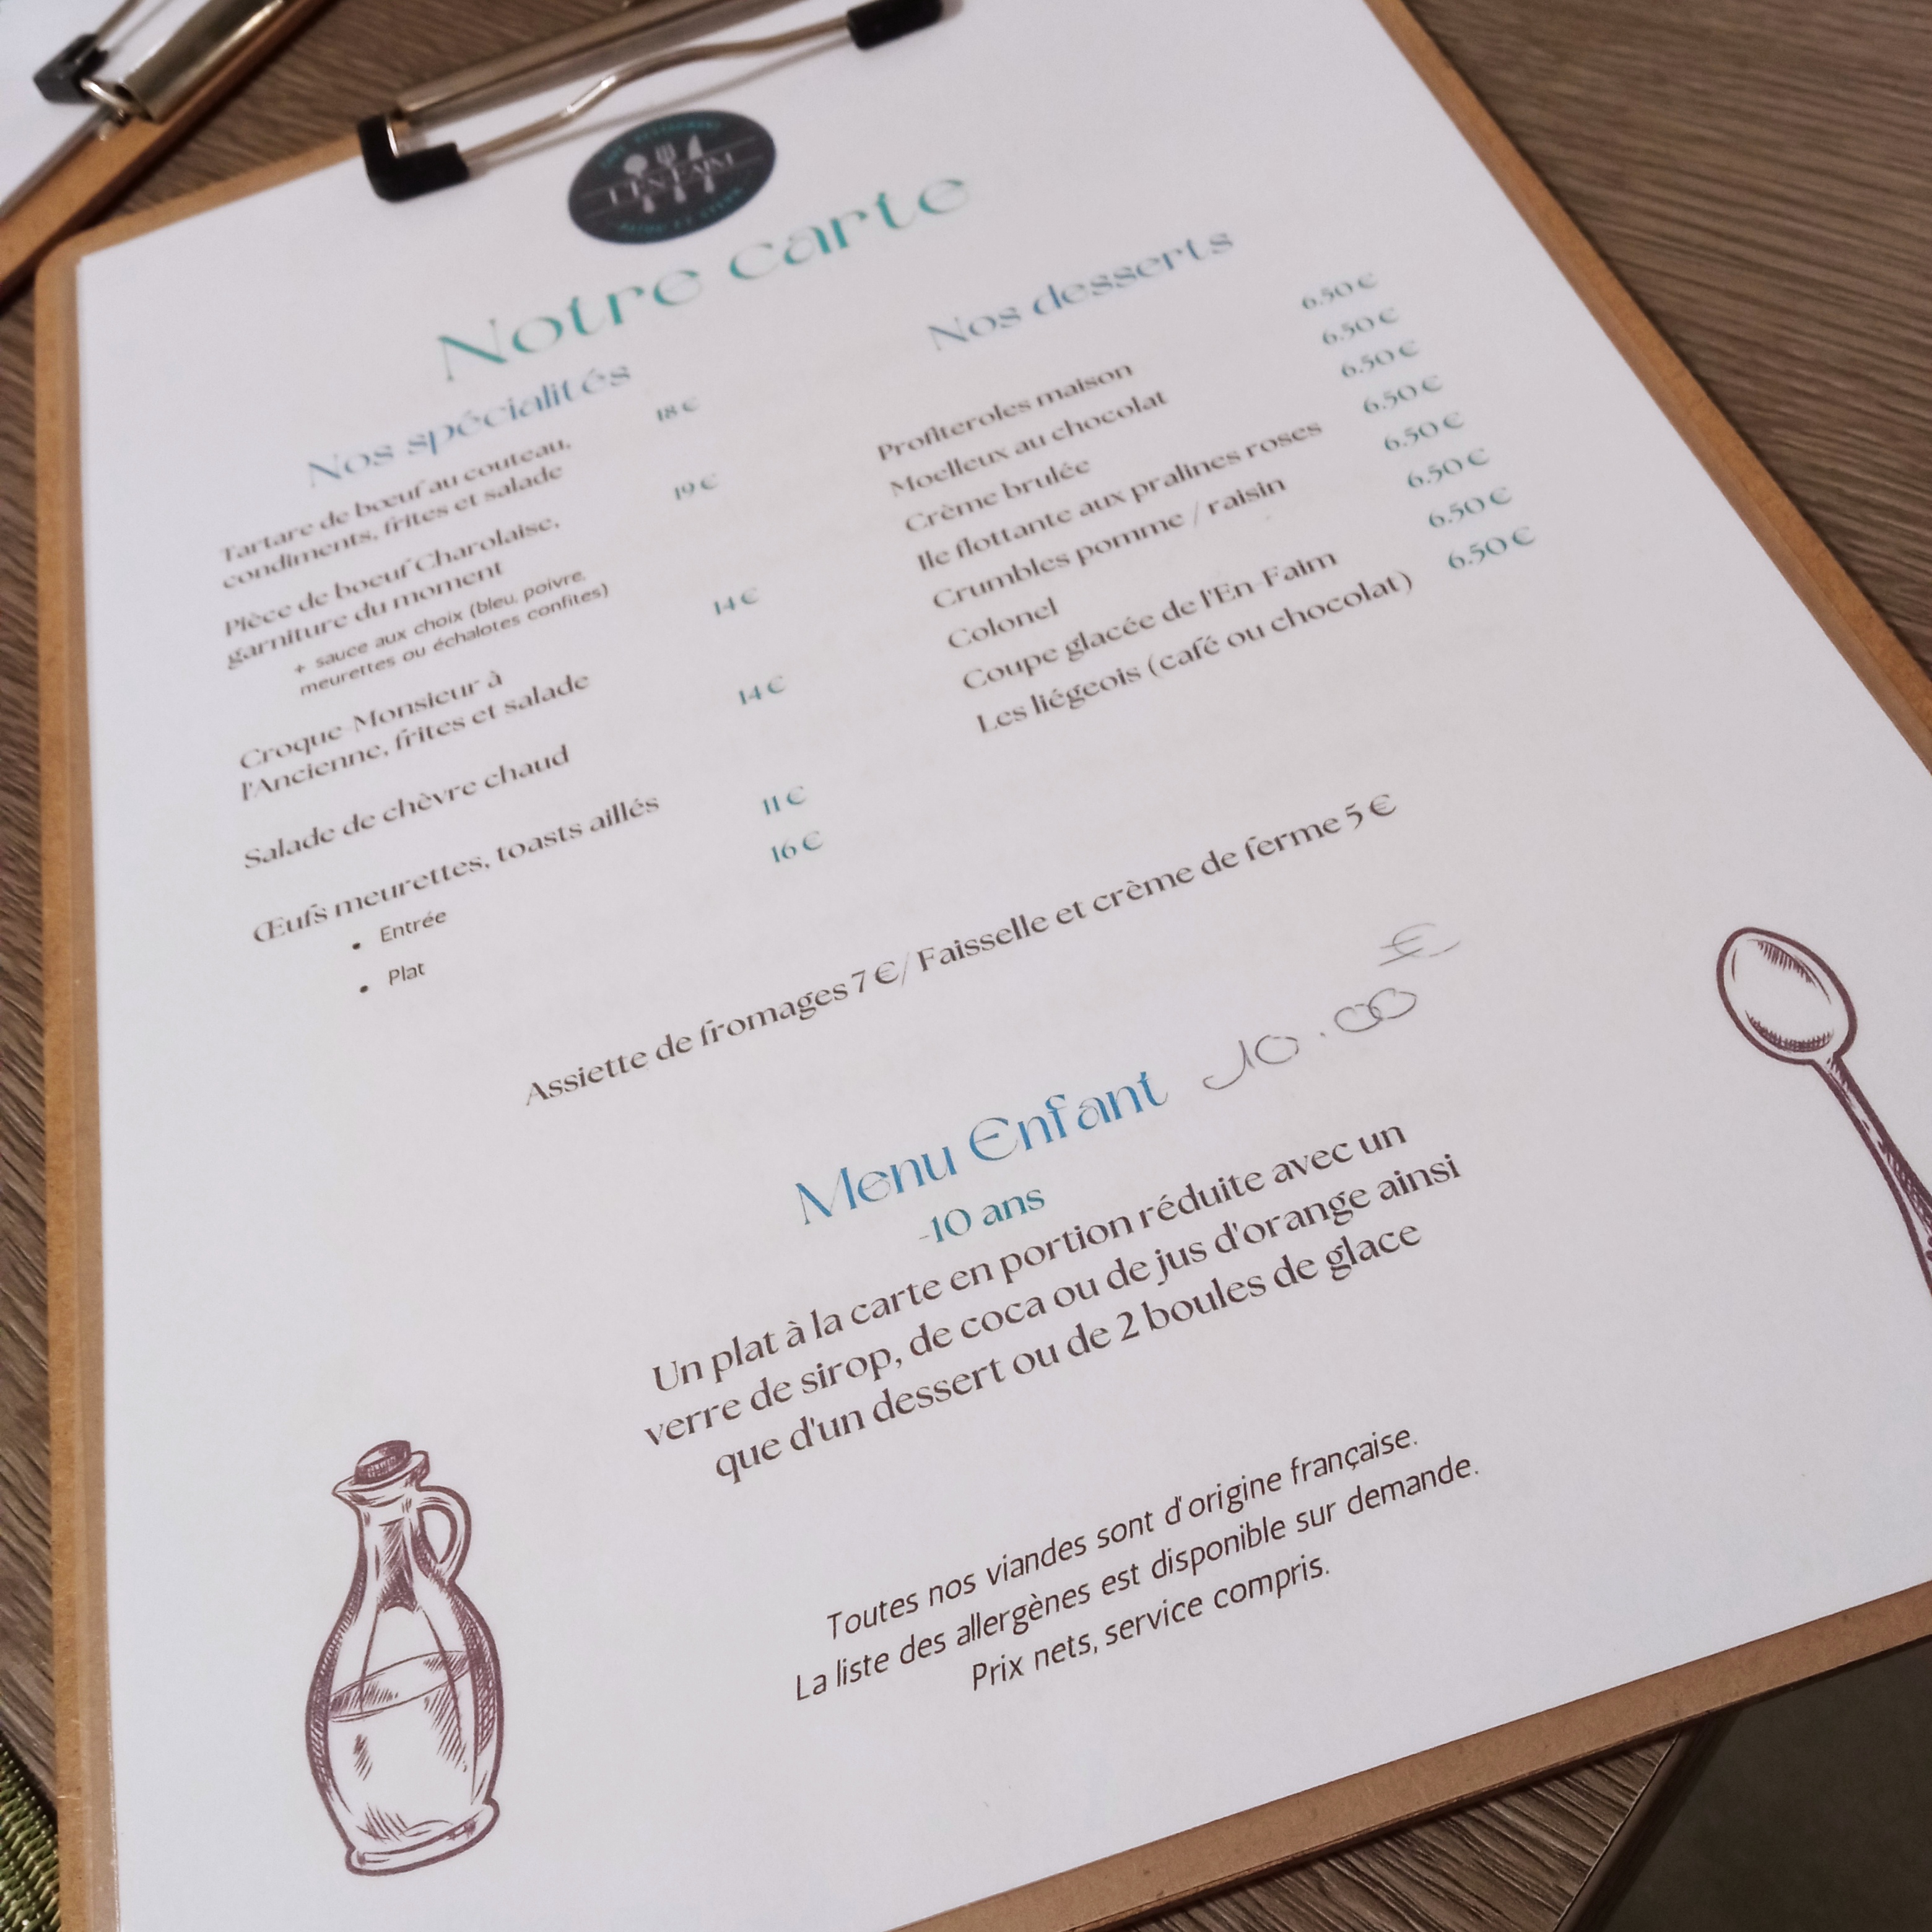 L'EN FAIM
Notre carte
Nos spécialités
Tartare de bœuf au couteau, 18 €
condiments, frites et salade
Pièce de boeuf Charolaise, 19 €
garniture du moment
+ sauce aux choix (bleu, poivre,
meurettes ou échalotes confites)
Croque-Monsieur à 14 €
l'Ancienne, frites et salade
Salade de chèvre chaud 14 €
Œufs meurettes, toasts aillés
• Entrée 11 €
• Plat 16 €
Nos desserts
Profiteroles maison 6.50 €
Moelleux au chocolat 6.50 €
Crème brulée 6.50 €
Ile flottante aux pralines roses 6.50 €
Crumbles pomme / raisin 6.50 €
Colonel 6.50 €
Coupe glacée de l'En-Faim 6.50 €
Les liégeois (café ou chocolat) 6.50 €
Assiette de fromages 7 €/ Faisselle et crème de ferme 5 €
Menu Enfant 10.00 €
-10 ans
Un plat à la carte en portion réduite avec un
verre de sirop, de coca ou de jus d'orange ainsi
que d'un dessert ou de 2 boules de glace
Toutes nos viandes sont d'origine française.
La liste des allergènes est disponible sur demande.
Prix nets, service compris.